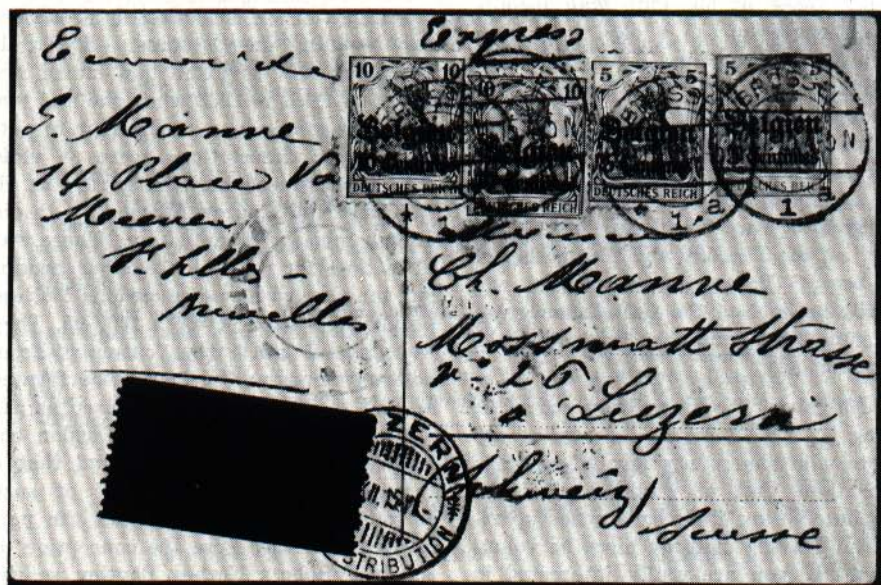 Express
Envoi de
G. Manne
14 Place Va
Meenen
St Gilles -
Bruxelles
10 10
Belgien
DEUTSCHES REICH
10
Belgien
DEUTSCHES REICH
5 5
Belgien
DEUTSCHES REICH
5
Belgien
DEUTSCHES REICH
* 1
* 1a
1a
Ch. Manne
Mossmatt Strasse
n° 26
a Luzern
(Schweiz)
Suisse
ZERN
XII.15
STRIBUTION